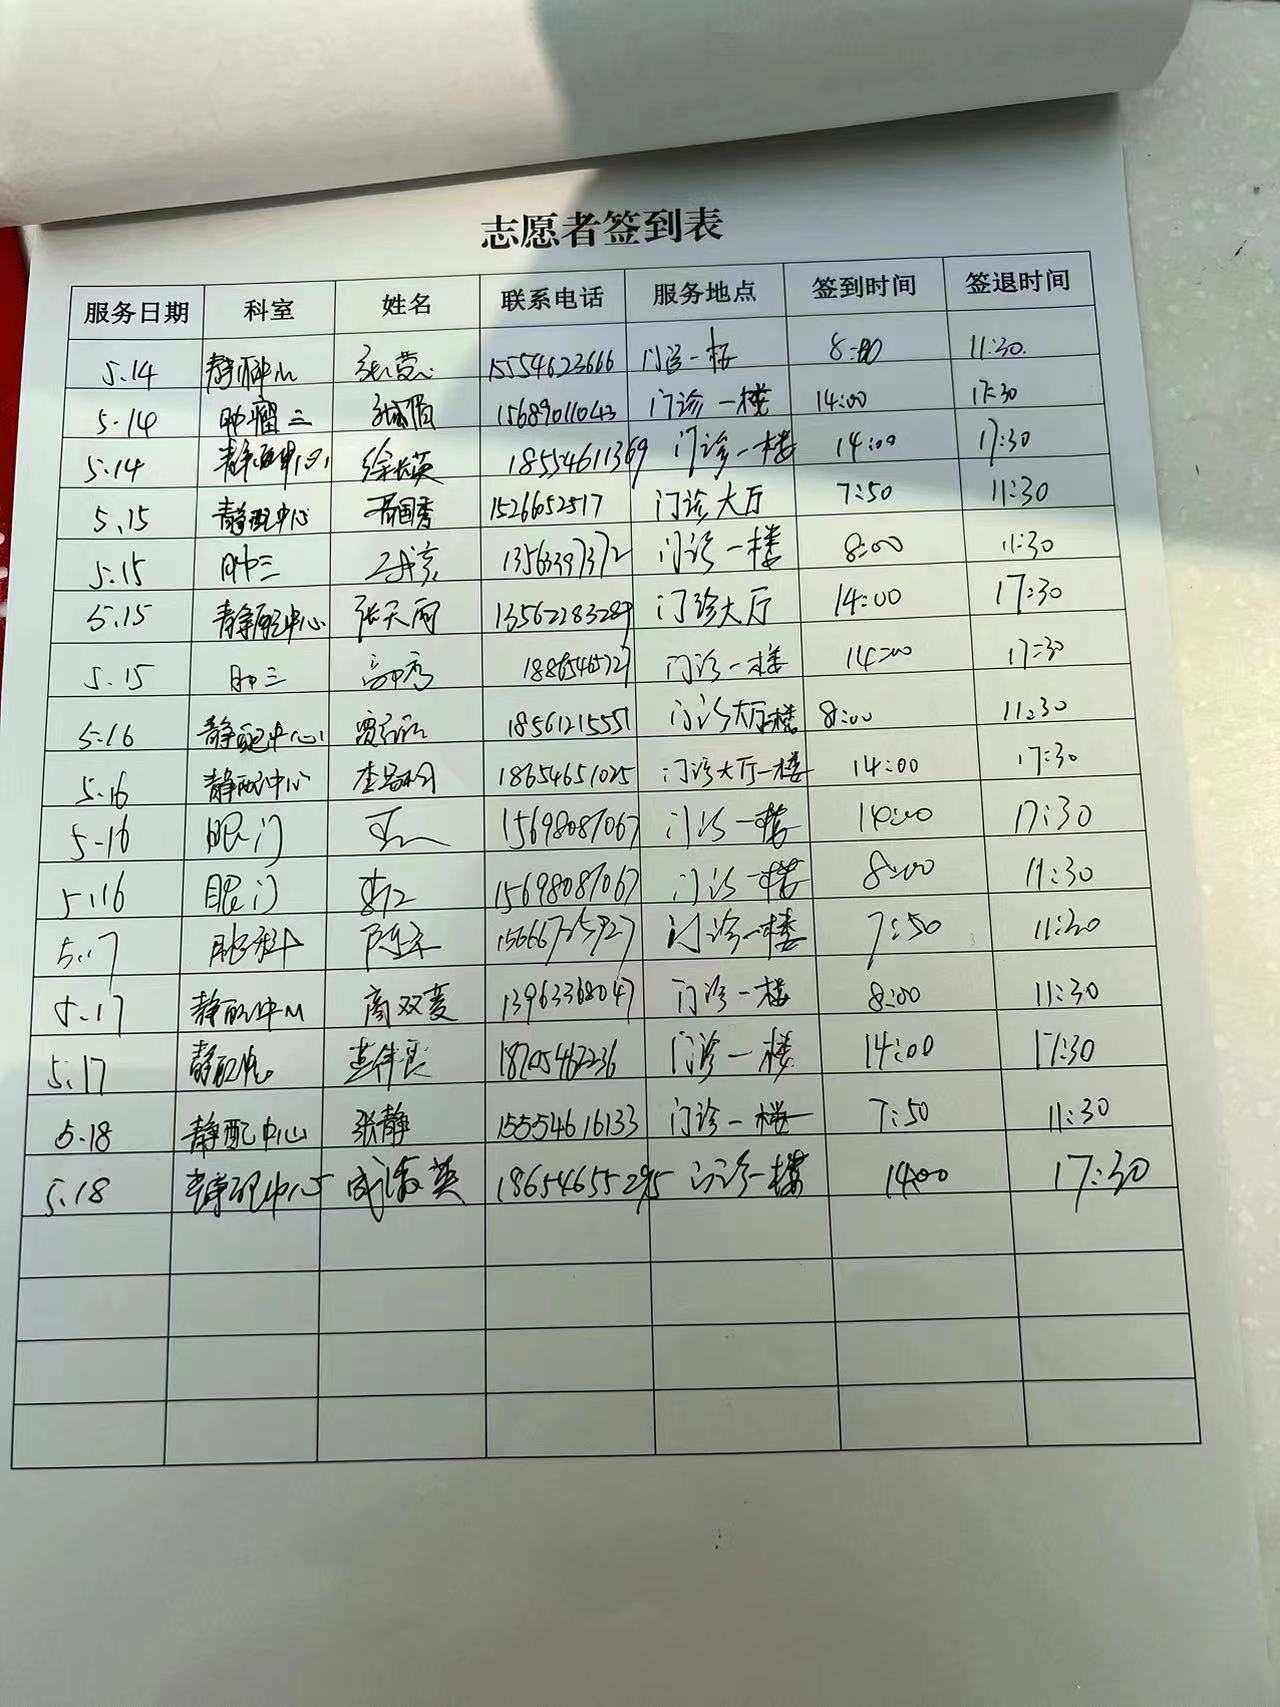 志愿者签到表
服务日期 科室 姓名 联系电话 服务地点 签到时间 签退时间
5.14 15554623666 门诊一楼 8:00 11:30
5.14 肿瘤三 15689011043 门诊一楼 14:00 17:30
5.14 静配中心 徐英 18554611369 门诊一楼 14:00 17:30
5.15 静配中心 国秀 15266052517 门诊大厅 7:50 11:30
5.15 肿三 13563397372 门诊一楼 8:00 11:30
5.15 静配中心 张天雨 13562283289 门诊大厅 14:00 17:30
5.15 肿三 门诊一楼 14:00 17:30
5.16 静配中心 18561215551 门诊大厅一楼 8:00 11:30
5.16 静配中心 18654651025 门诊大厅一楼 14:00 17:30
5.16 眼门 15698087067 门诊一楼 14:00 17:30
5.16 眼门 15698087067 门诊一楼 8:00 11:30
5.17 15666725927 门诊一楼 7:50 11:30
5.17 静配中心 高双菱 13963368047 门诊一楼 8:00 11:30
5.17 18705462236 门诊一楼 14:00 17:30
5.18 静配中心 张静 15554616133 门诊一楼 7:50 11:30
5.18 静配中心 成淑英 18654655295 门诊一楼 14:00 17:30